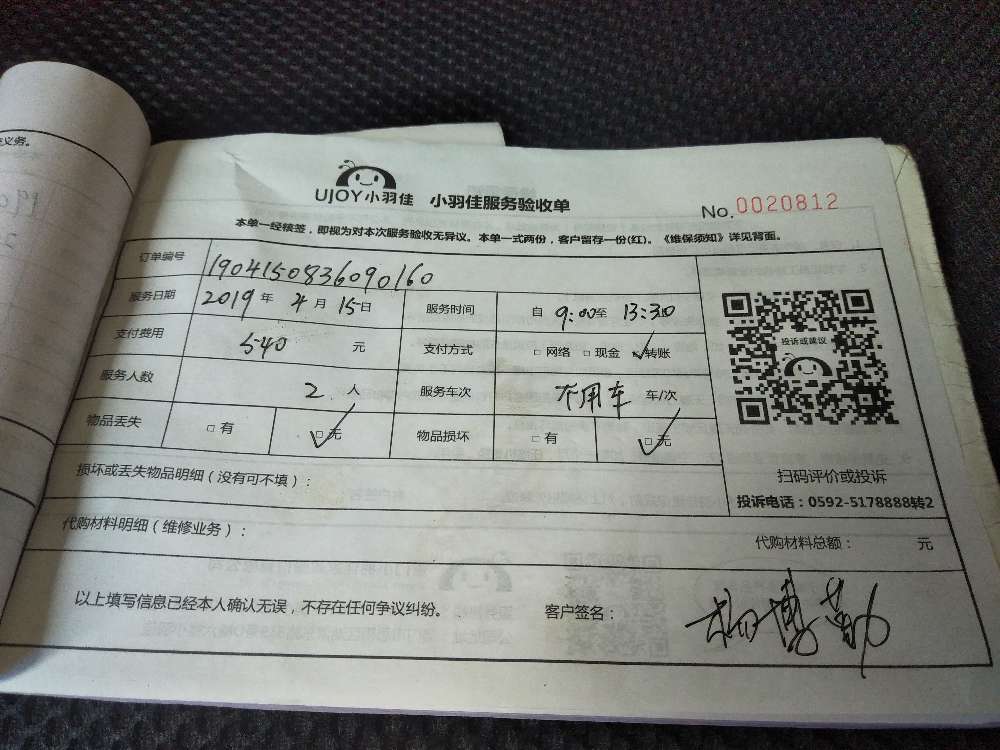 UJOY小羽佳 小羽佳服务验收单
No. 0020812
本单一经核签，即视为对本次服务验收无异议。本单一式两份，客户留存一份(红)。《维保须知》详见背面。
订单编号 1904150836090160
服务日期 2019年 4月 15日 服务时间 自 9:00至 13:30
支付费用 540 元 支付方式 □ 网络 □ 现金 ☑转账
服务人数 2 人 服务车次 不用车 车/次
物品丢失 □ 有 ☑ 无 物品损坏 □ 有 ☑ 无
投诉或建议
扫码评价或投诉
投诉电话：0592-5178888转2
损坏或丢失物品明细（没有可不填）：
代购材料明细（维修业务）： 代购材料总额： 元
以上填写信息已经本人确认无误，不存在任何争议纠纷。 客户签名：
义务。